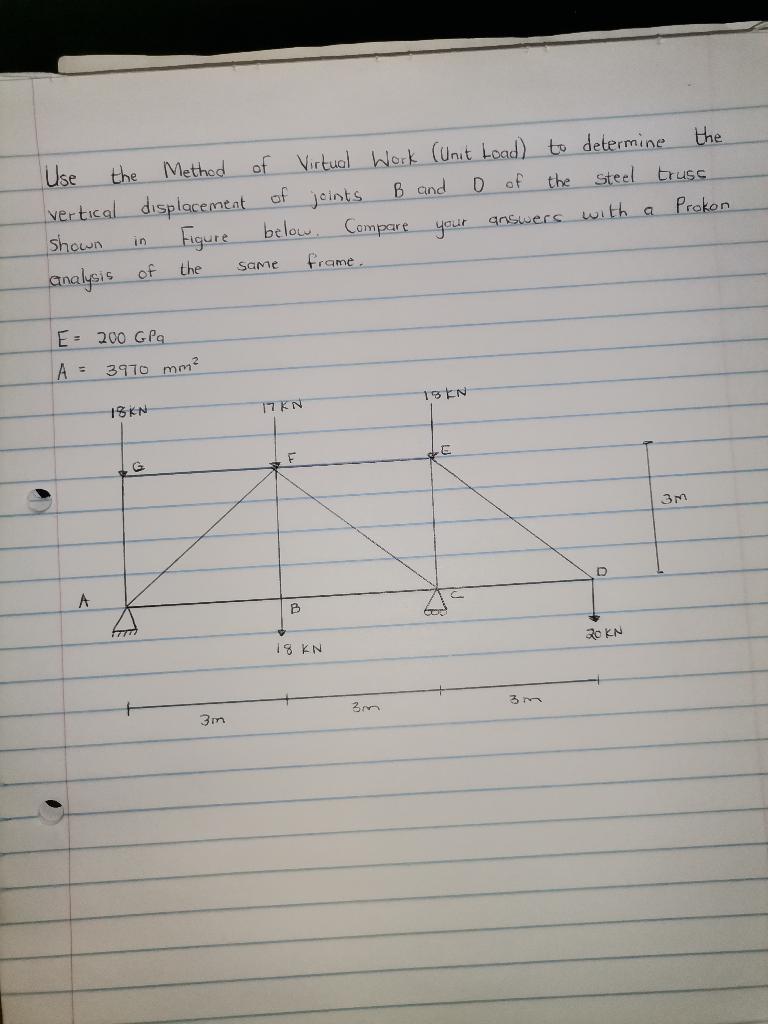 Use the Method of Virtual Work (Unit Load) to determine the
vertical displacement of joints B and D of the steel truss
shown in Figure below. Compare your answers with a Prokon
analysis of the same frame.
E = 200 GPa
A = 3970 mm²
18KN 17KN 18KN
G F E
3m
A B C D
18 KN 20 KN
3m 3m 3m